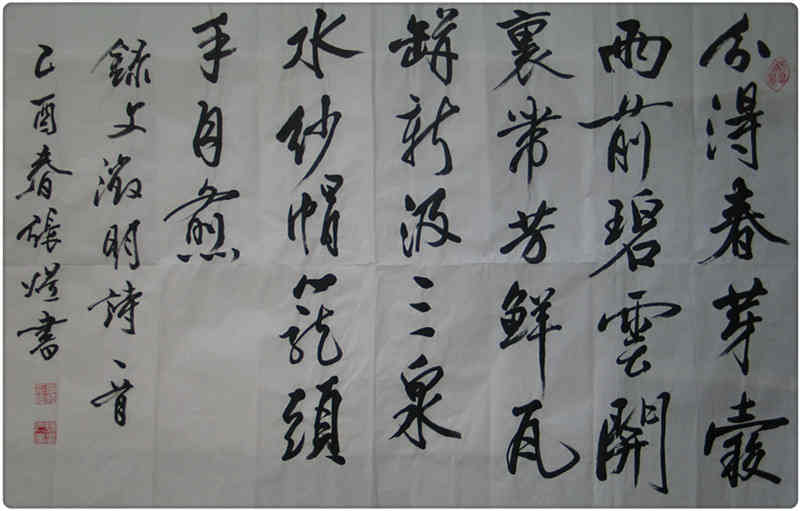 分得春芽穀
雨前碧雲開
裏帶芳鮮瓦
缾新汲三泉
水紗帽籠頭
手自煎
錄文徵明詩一首
乙酉春張書